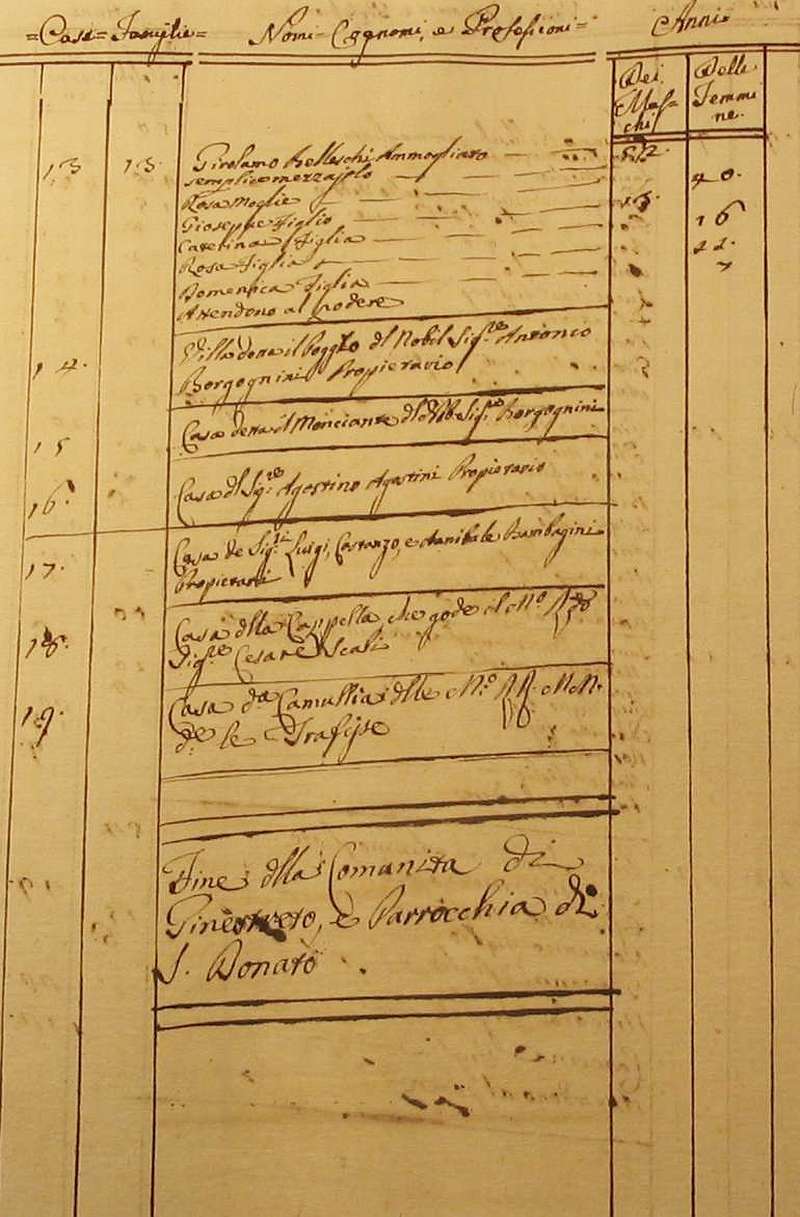 =Case= Famiglie= Nomi= Cognomi, e Professioni= Anni=
Dei Mas=chi Delle Femmine.
13 13 Girolamo Belleschi Ammogliato 52.
semplice mezzajolo
Rosa Moglie 40.
Gioseppe Figlio 13.
Caterina Figlia 16
Rosa Figlia 11.
Domenica Figlia 7
Attendono al podere
14. Villa detta il Poggio dl Nobil Sig.re Antonio
Borgognini Propietario
15 Casa detta il Monciante dl Sig.re Borgognini
16. Casa dl Sig.re Agostino Agostini Propietario
17. Casa de Sig.ri Luigi, Costanzo, e Anibale Bambagini
Propietari
18. Casa dlla Cappella che gode il M.o R.do
Sig.re Cesare Scali
19. Casa d.a Camullia dlle M.o RR. MM.
d.e le Trafisse
Fine dlla Comunita di
Ginestreto, e Parrocchia di
S. Donato.